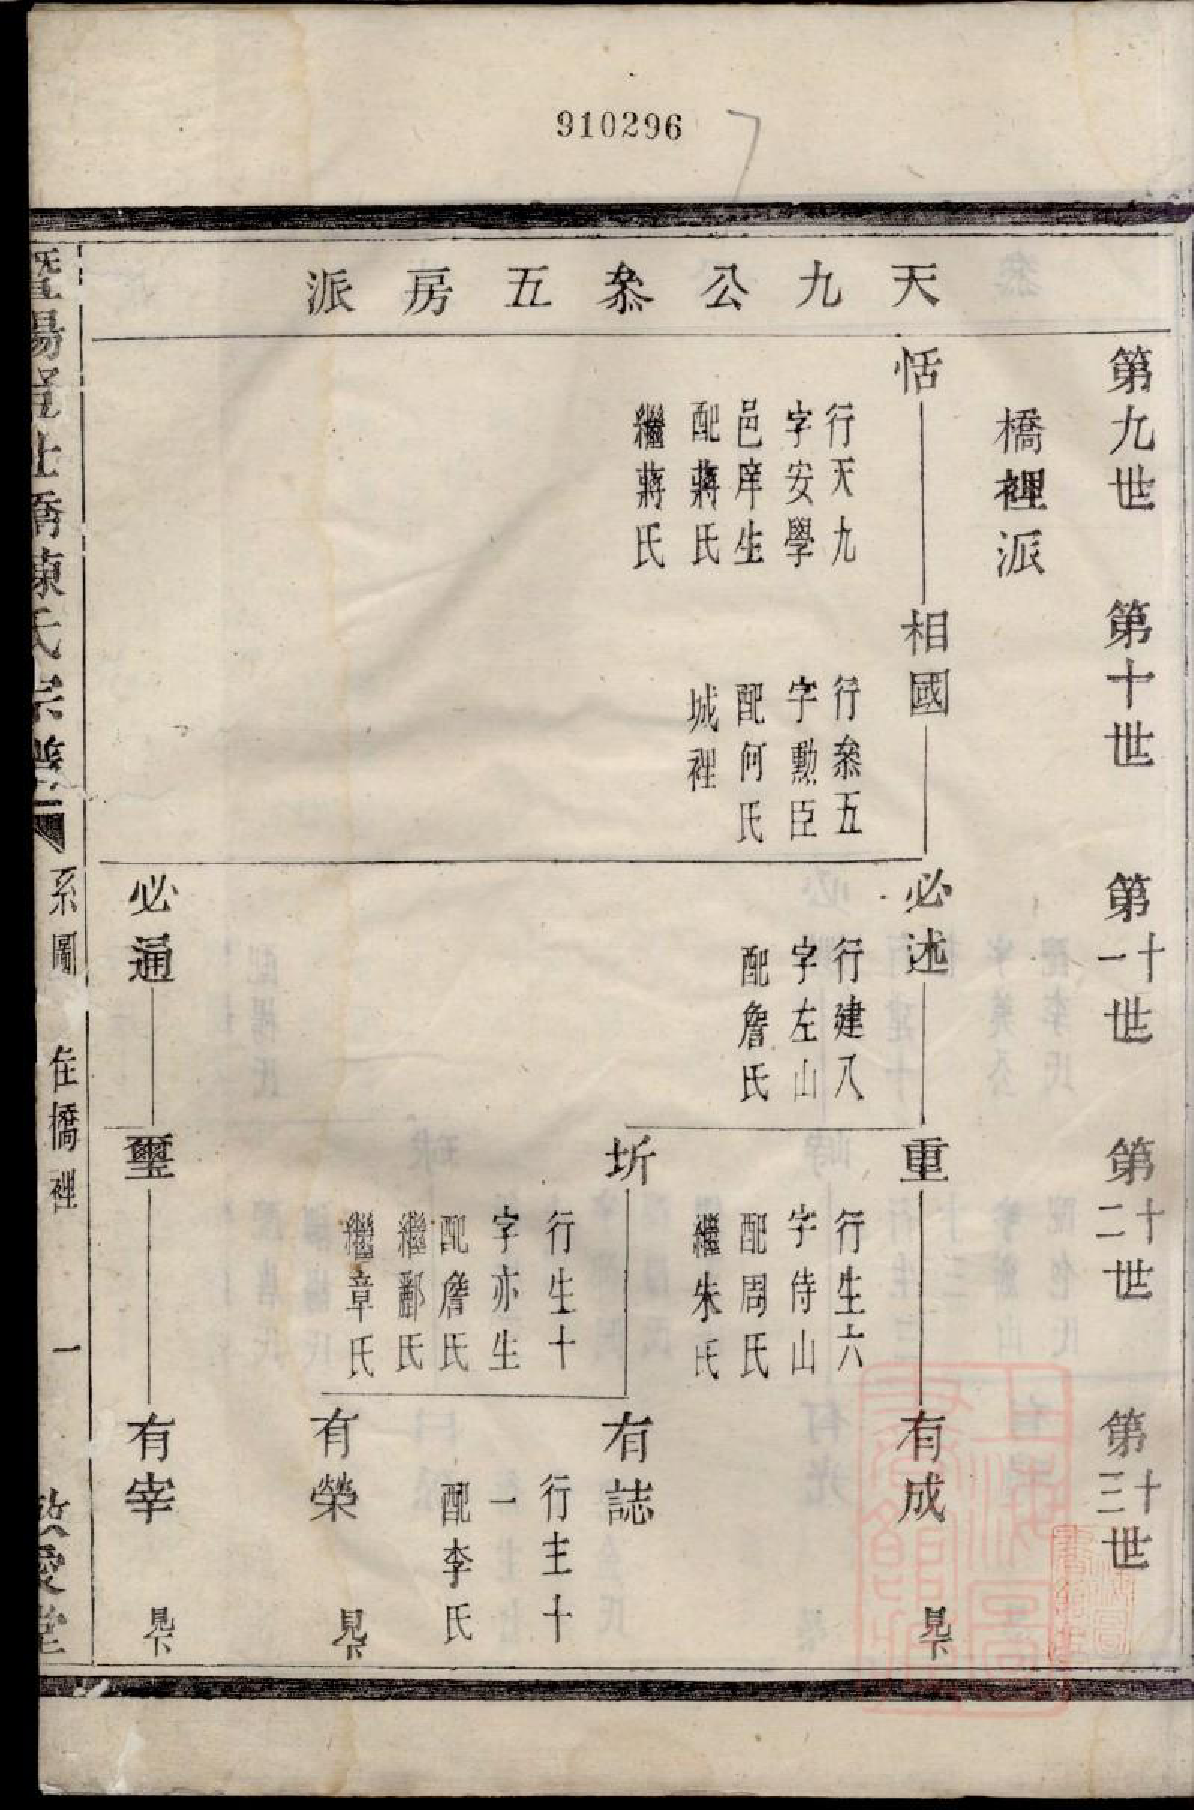 910296
7
天九公叅五房派
第九世
橋裡派
恬
行天九
字安學
邑庠生
配蔣氏
繼蔣氏
第十世
相國
行叅五
字勲臣
配何氏
城裡
第十一世
必述
行建八
字左山
配詹氏
必通
第十二世
重
行生六
字侍山
配周氏
繼朱氏
圻
行生十
字亦生
配詹氏
繼酈氏
繼章氏
璽
第十三世
有成
見下
有誌
行主十
一
配李氏
有榮
見下
有宰
見下
暨陽
橋陳氏宗譜
系圖
住橋裡
一
敦愛堂